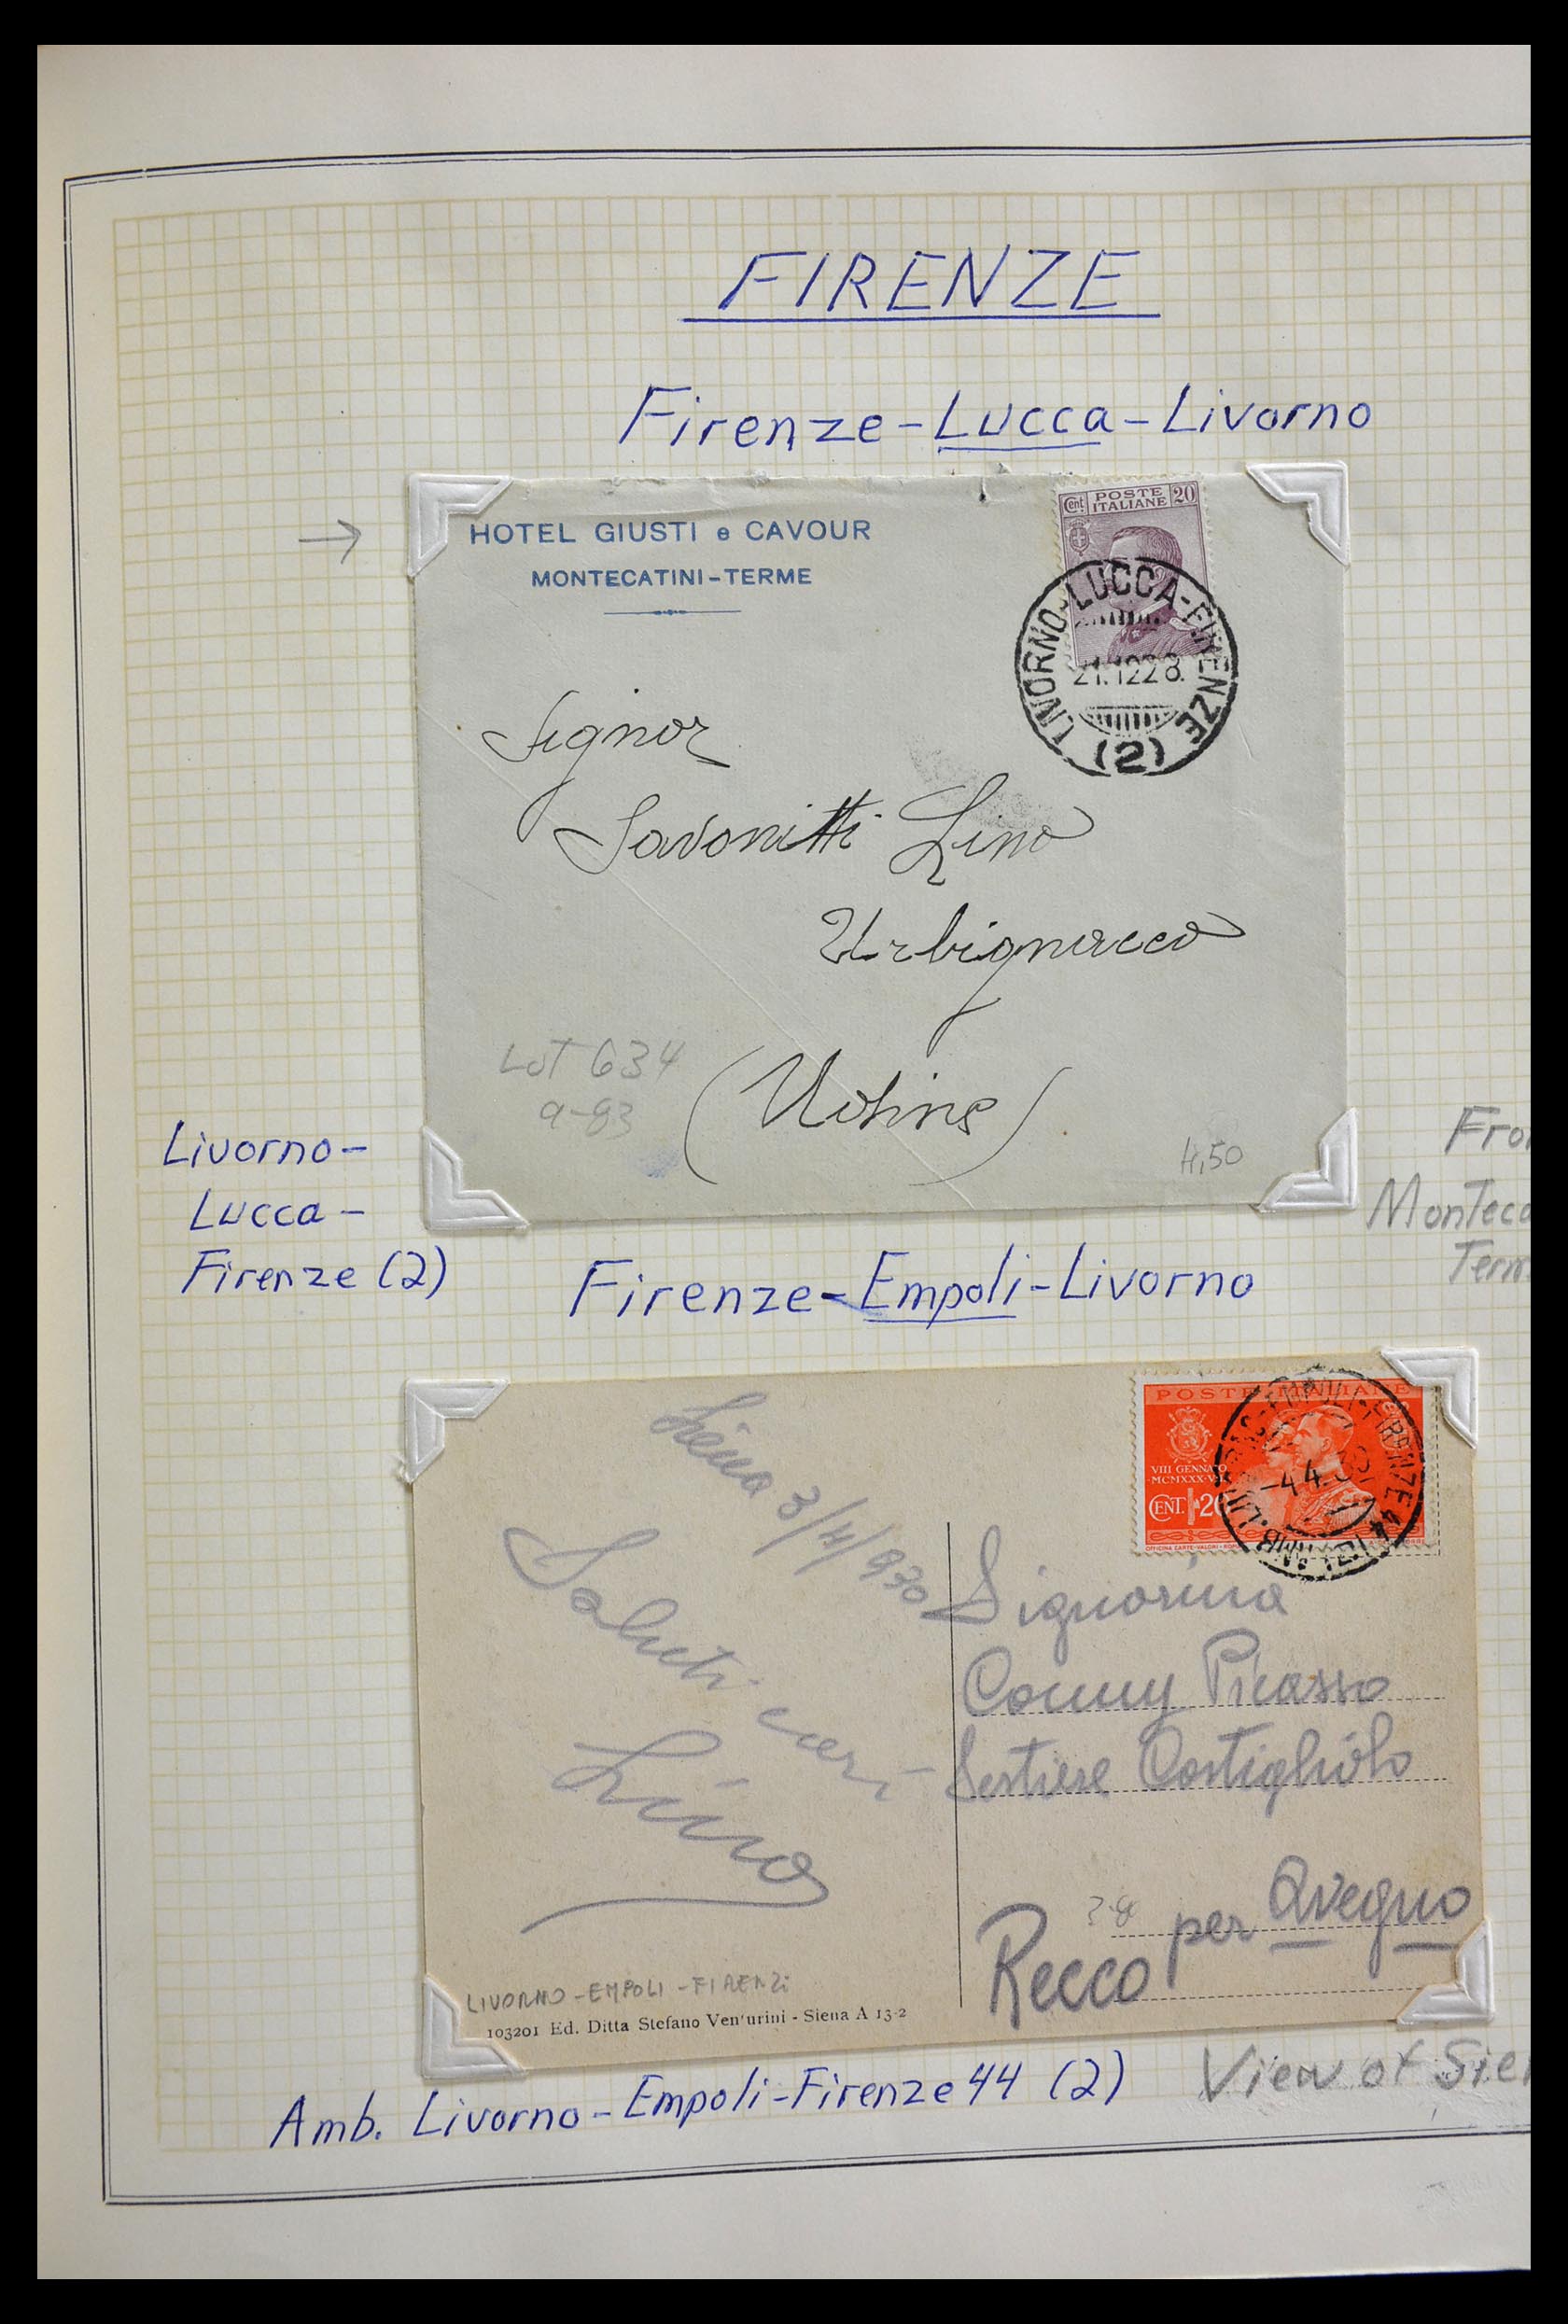 FIRENZE
Firenze-Lucca-Livorno
HOTEL GIUSTI e CAVOUR
MONTECATINI-TERME
Cent POSTE ITALIANE 20
LIVORNO-LUCCA-FIRENZE
21.12 28.
(2)
Signor
Savonitti Lino
Urbignacco
(Udine)
Lot 634
a-83
4,50
Livorno-
Lucca-
Firenze (2)
Firenze-Empoli-Livorno
POSTE ITALIANE
VIII GENNAIO
MCMXXX
CENT. 20
-4 4.30
Siena 3/4/930
Saluti cari
Lino
Signorina
Conny Picasso
Sestiere Costigliolo
Recco per Avegno
LIVORNO-EMPOLI-FIRENZE
103201 Ed. Ditta Stefano Venturini - Siena A 13-2
Amb. Livorno-Empoli-Firenze 44 (2)
View of